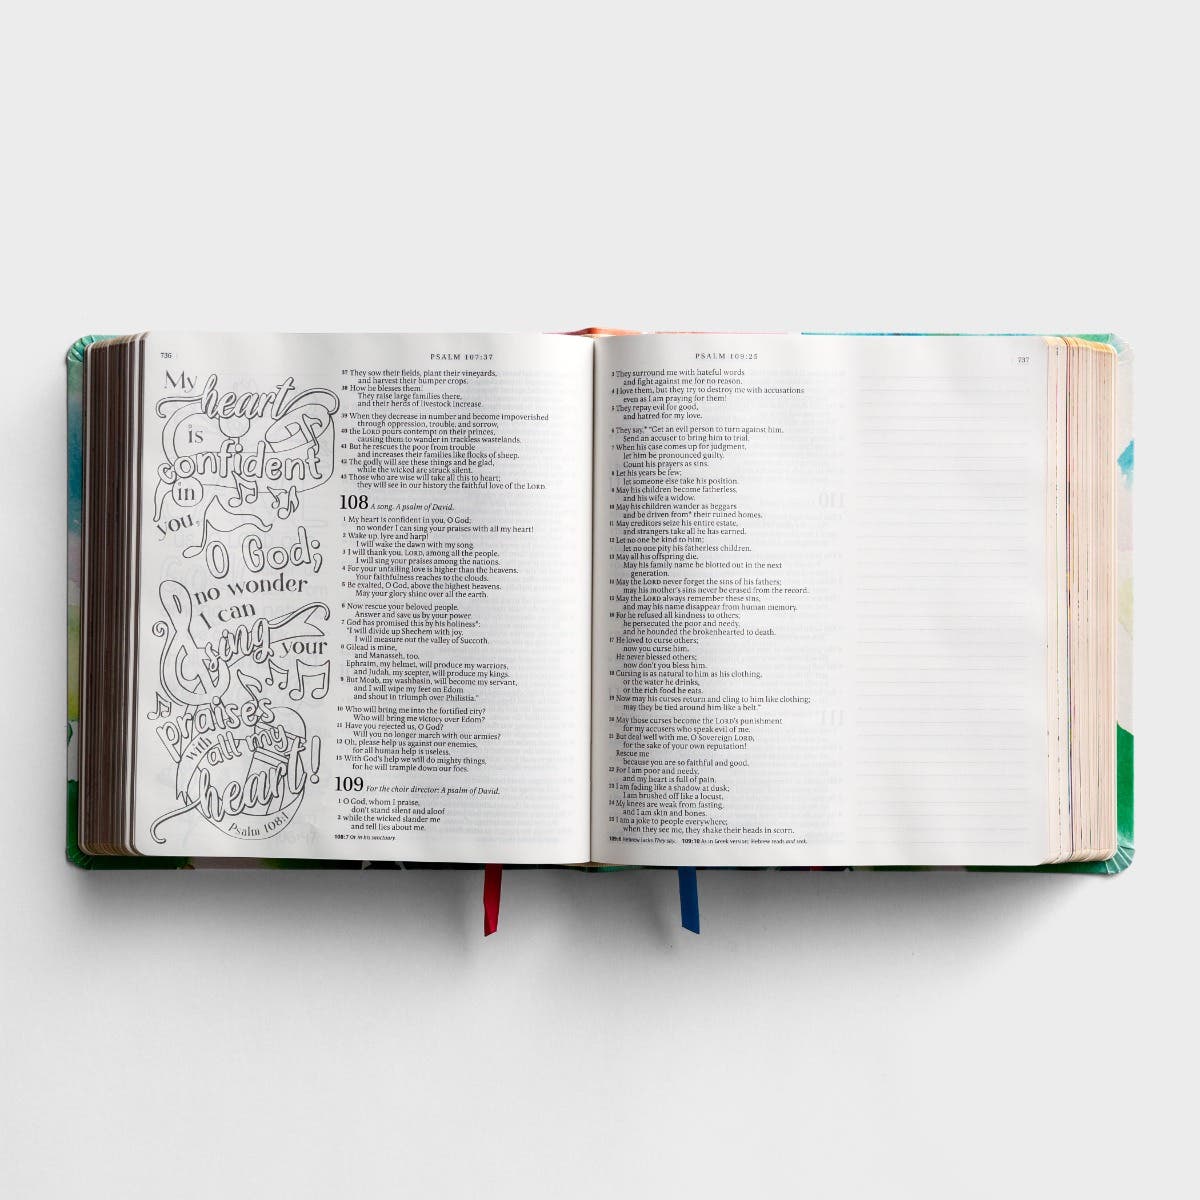 736
PSALM 107:37
My
heart
is
confident
in
you,
O God;
no wonder
I can
sing your
praises
with
all my
heart!
Psalm 108:1
37 They sow their fields, plant their vineyards,
and harvest their bumper crops.
38 How he blesses them!
They raise large families there,
and their herds of livestock increase.
39 When they decrease in number and become impoverished
through oppression, trouble, and sorrow,
40 the LORD pours contempt on their princes,
causing them to wander in trackless wastelands.
41 But he rescues the poor from trouble
and increases their families like flocks of sheep.
42 The godly will see these things and be glad,
while the wicked are struck silent.
43 Those who are wise will take all this to heart;
they will see in our history the faithful love of the LORD.
108 A song. A psalm of David.
1 My heart is confident in you, O God;
no wonder I can sing your praises with all my heart!
2 Wake up, lyre and harp!
I will wake the dawn with my song.
3 I will thank you, LORD, among all the people.
I will sing your praises among the nations.
4 For your unfailing love is higher than the heavens.
Your faithfulness reaches to the clouds.
5 Be exalted, O God, above the highest heavens.
May your glory shine over all the earth.
6 Now rescue your beloved people.
Answer and save us by your power.
7 God has promised this by his holiness*:
"I will divide up Shechem with joy.
I will measure out the valley of Succoth.
8 Gilead is mine,
and Manasseh, too.
Ephraim, my helmet, will produce my warriors,
and Judah, my scepter, will produce my kings.
9 But Moab, my washbasin, will become my servant,
and I will wipe my feet on Edom
and shout in triumph over Philistia."
10 Who will bring me into the fortified city?
Who will bring me victory over Edom?
11 Have you rejected us, O God?
Will you no longer march with our armies?
12 Oh, please help us against our enemies,
for all human help is useless.
13 With God's help we will do mighty things,
for he will trample down our foes.
109 For the choir director: A psalm of David.
1 O God, whom I praise,
don't stand silent and aloof
2 while the wicked slander me
and tell lies about me.
108:7 Or in his sanctuary.
PSALM 109:25
737
3 They surround me with hateful words
and fight against me for no reason.
4 I love them, but they try to destroy me with accusations
even as I am praying for them!
5 They repay evil for good,
and hatred for my love.
6 They say,* "Get an evil person to turn against him.
Send an accuser to bring him to trial.
7 When his case comes up for judgment,
let him be pronounced guilty.
Count his prayers as sins.
8 Let his years be few;
let someone else take his position.
9 May his children become fatherless,
and his wife a widow.
10 May his children wander as beggars
and be driven from* their ruined homes.
11 May creditors seize his entire estate,
and strangers take all he has earned.
12 Let no one be kind to him;
let no one pity his fatherless children.
13 May all his offspring die.
May his family name be blotted out in the next
generation.
14 May the LORD never forget the sins of his fathers;
may his mother's sins never be erased from the record.
15 May the LORD always remember these sins,
and may his name disappear from human memory.
16 For he refused all kindness to others;
he persecuted the poor and needy,
and he hounded the brokenhearted to death.
17 He loved to curse others;
now you curse him.
He never blessed others;
now don't you bless him.
18 Cursing is as natural to him as his clothing,
or the water he drinks,
or the rich food he eats.
19 Now may his curses return and cling to him like clothing;
may they be tied around him like a belt."
20 May those curses become the LORD's punishment
for my accusers who speak evil of me.
21 But deal well with me, O Sovereign LORD,
for the sake of your own reputation!
Rescue me
because you are so faithful and good.
22 For I am poor and needy,
and my heart is full of pain.
23 I am fading like a shadow at dusk;
I am brushed off like a locust.
24 My knees are weak from fasting,
and I am skin and bones.
25 I am a joke to people everywhere;
when they see me, they shake their heads in scorn.
109:6 Hebrew lacks They say. 109:10 As in Greek version; Hebrew reads and seek.